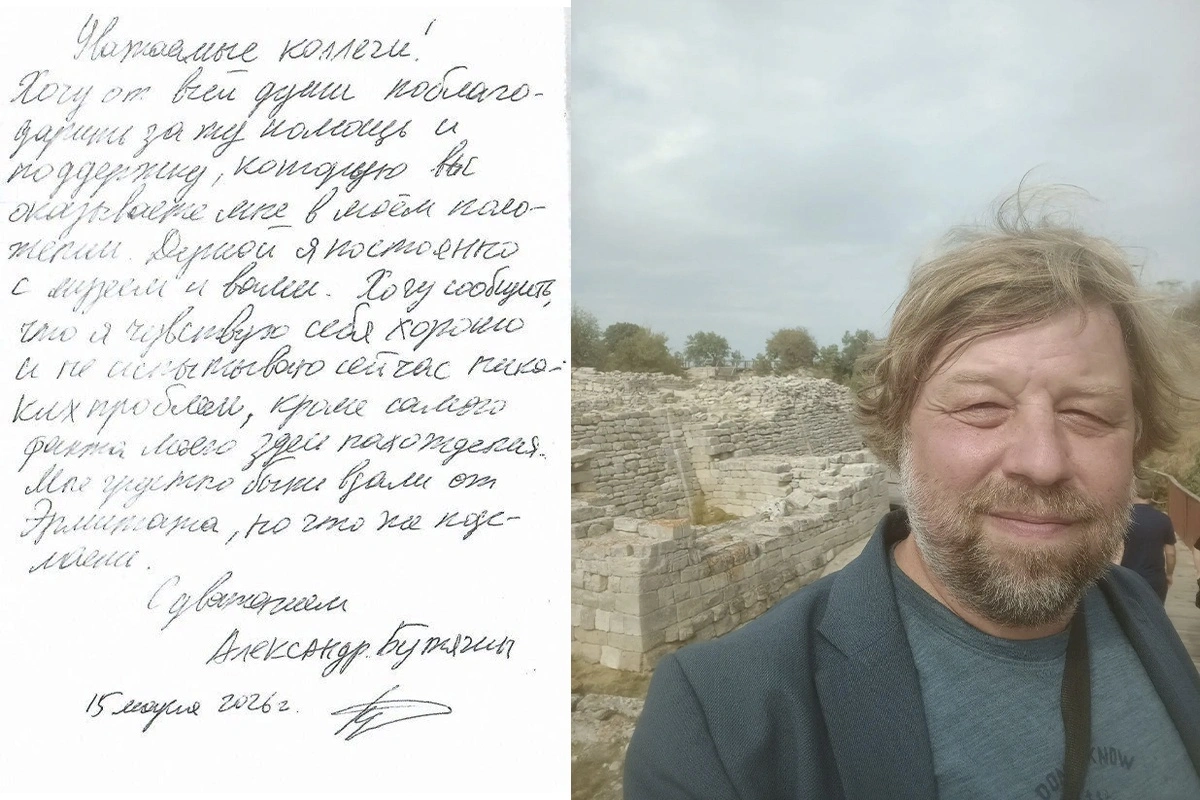 Уважаемые коллеги!
Хочу от всей души поблаго-
дарить за ту помощь и
поддержку, которую вы
оказываете мне в моём поло-
жении. Душой я постоянно
с музеем и вами. Хочу сообщить,
что я чувствую себя хорошо
и не испытываю сейчас ника-
ких проблем, кроме самого
факта моего здесь нахождения.
Мне грустно быть вдали от
Эрмитажа, но что же поде-
лаешь.
С уважением
Александр Бутягин
15 марта 2026 г.
DON'T KNOW